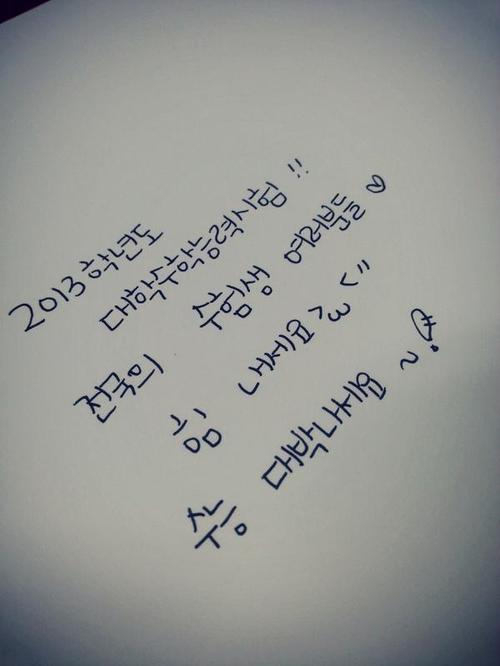 2013학년도
대학수학능력시험 !!
전국의 수험생 여러분들 ♡
힘 내세요 >3<"
수능 대박나세요 ~!